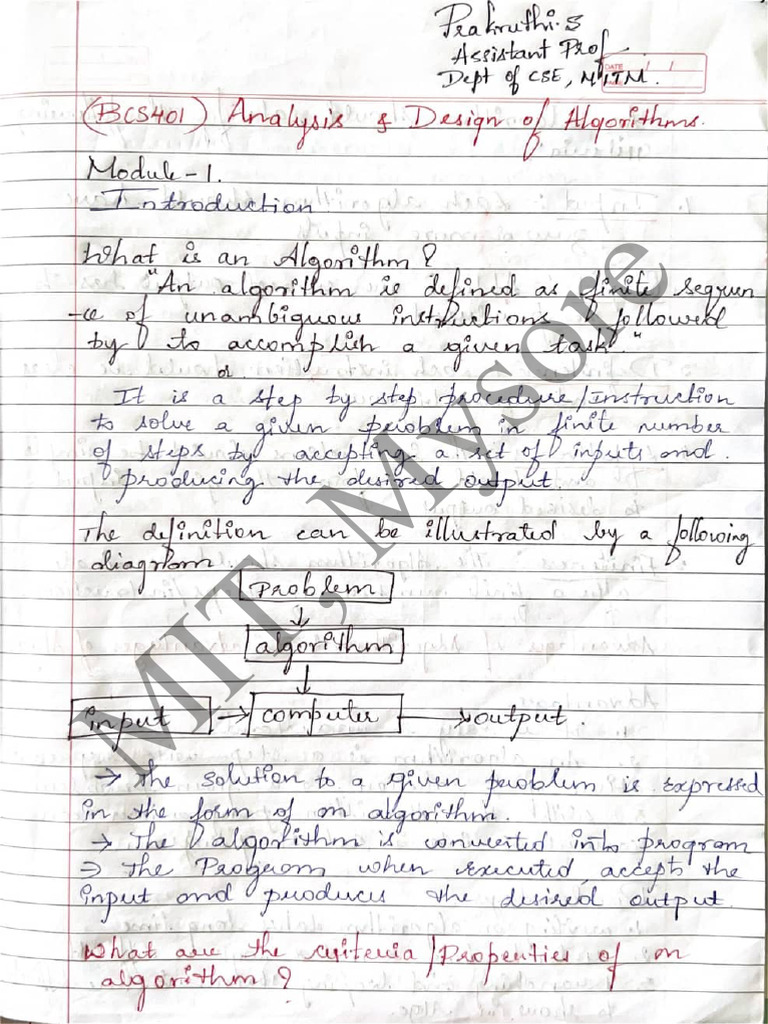 Prakruthi.S
Assistant Prof
Dept of CSE, MITM.
DATE
(BCS401) Analysis & Design of Algorithms.
Module-1.
Introduction
What is an Algorithm?
"An algorithm is defined as finite sequen
-ce of unambiguous instructions followed
by to accomplish a given task."
or
It is a step by step procedure/Instruction
to solve a given problem in finite number
of steps by accepting a set of inputs and
producing the desired output.
The definition can be illustrated by a following
diagram.
Problem
algorithm
input → computer → output.
→ The solution to a given problem is expressed
in the form of an algorithm.
→ The algorithm is converted into program
⇒ The Program when executed, accept the
input and produces the desired output
What are the criteria/Properties of an
algorithm?
MIT, Mysore